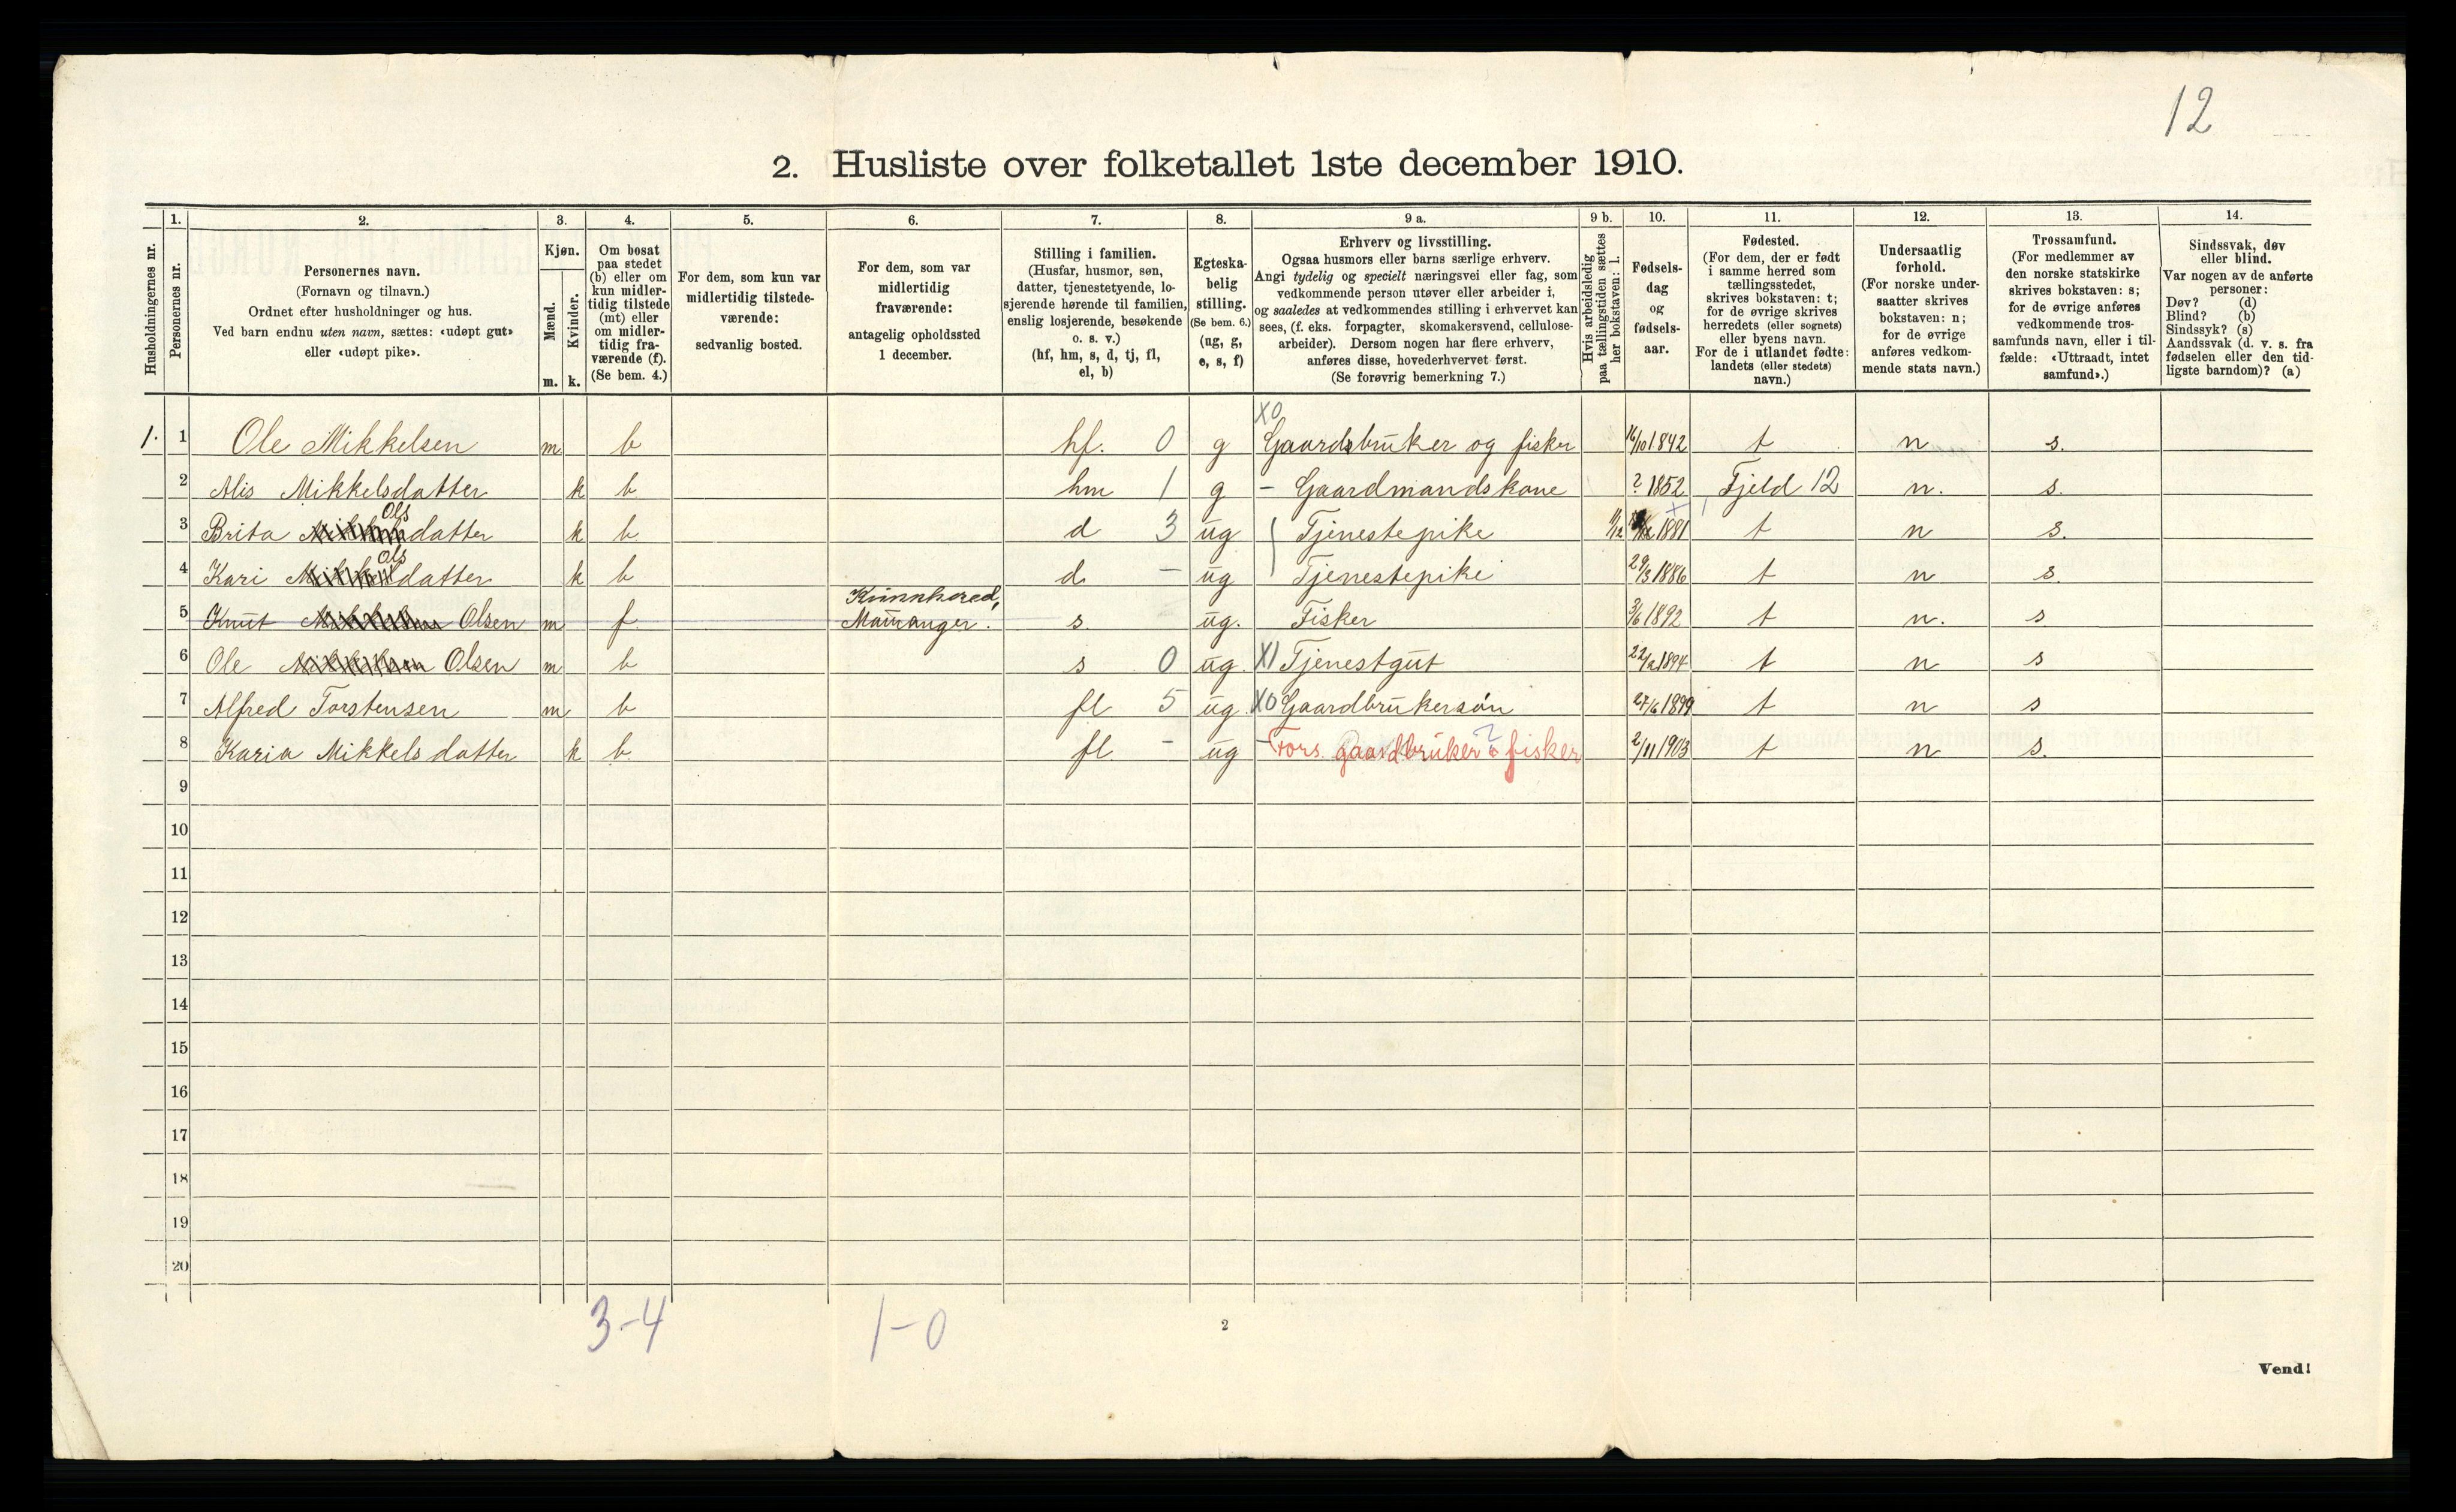 12
2. Husliste over folketallet 1ste december 1910.
Husholdningernes nr.
1.
Personernes nr.
2.
Personernes navn.
(Fornavn og tilnavn.)
Ordnet efter husholdninger og hus.
Ved barn endnu uten navn, sættes: «udøpt gut»
eller «udøpt pike».
3.
Kjøn.
Mænd.
Kvinder.
m. k.
4.
Om bosat
paa stedet
(b) eller om
kun midler-
tidig tilstede
(mt) eller
om midler-
tidig fra-
værende (f).
(Se bem. 4.)
5.
For dem, som kun var
midlertidig tilstede-
værende:
sedvanlig bosted.
6.
For dem, som var
midlertidig
fraværende:
antagelig opholdssted
1 december.
7.
Stilling i familien.
(Husfar, husmor, søn,
datter, tjenestetyende, lo-
sjerende hørende til familien,
enslig losjerende, besøkende
o. s. v.)
(hf, hm, s, d, tj, fl,
el, b)
8.
Egteska-
belig
stilling.
(Se bem. 6.)
(ug, g,
e, s, f)
9 a.
Erhverv og livsstilling.
Ogsaa husmors eller barns særlige erhverv.
Angi tydelig og specielt næringsvei eller fag, som
vedkommende person utøver eller arbeider i,
og saaledes at vedkommendes stilling i erhvervet kan
sees, (f. eks. forpagter, skomakersvend, cellulose-
arbeider). Dersom nogen har flere erhverv,
anføres disse, hovederhvervet først.
(Se forøvrig bemerkning 7.)
9 b.
Hvis arbeidsledig
paa tællingstiden sættes
her bokstaven: l.
10.
Fødsels-
dag
og
fødsels-
aar.
11.
Fødested.
(For dem, der er født
i samme herred som
tællingsstedet,
skrives bokstaven: t;
for de øvrige skrives
herredets (eller sognets)
eller byens navn.
For de i utlandet fødte:
landets (eller stedets)
navn.)
12.
Undersaatlig
forhold.
(For norske under-
saatter skrives
bokstaven: n;
for de øvrige
anføres vedkom-
mende stats navn.)
13.
Trossamfund.
(For medlemmer av
den norske statskirke
skrives bokstaven: s;
for de øvrige anføres
vedkommende tros-
samfunds navn, eller i til-
fælde: «Uttraadt, intet
samfund».)
14.
Sindssvak, døv
eller blind.
Var nogen av de anførte
personer:
Døv? (d)
Blind? (b)
Sindssyk? (s)
Aandssvak (d. v. s. fra
fødselen eller den tid-
ligste barndom)? (a)
1. 1 Ole Mikkelsen m b hf. 0 g X0 Gaardsbruker og fisker 16/10 1842 t n s.
2 Alis Mikkelsdatter k b hm 1 g - Gaardmandskone ? 1852 Fjeld 12 n. s.
3 Brita Olsdatter k b d 3 ug Tjenestepike 1881 t n s.
4 Kari Olsdatter k b d - ug Tjenestepike 29/3 1886 t n s.
5 Knut Olsen m f Kvinnhered, Mauranger. s ug. Fisker 3/6 1892 t n. s
6 Ole Olsen m b s 0 ug X1 Tjenestgut 22/2 1894 t n s
7 Alfred Torstensen m b fl 5 ug X0 Gaardbrukersøn 27/6 1899 t n s
8 Karia Mikkelsdatter k b fl - ug - Fors. gaardbruker & fisker ? 2/11 1903 t n s.
9
10
11
12
13
14
15
16
17
18
19
20
3-4 1-0
2
Vend!